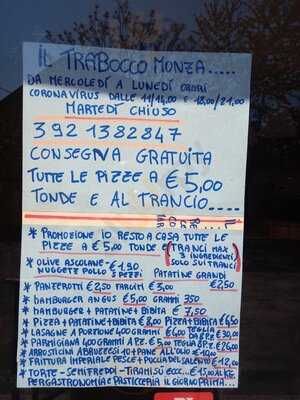 IL TRABOCCO MONZA.....
DA MERCOLEDÌ A LUNEDÌ ORARI
CORONAVIRUS DALLE 11/14,00 E 18,00/21,00
MARTEDÌ CHIUSO
392 1382847
CONSEGNA GRATUITA
TUTTE LE PIZZE A €5,00
TONDE E AL TRANCIO....
* PROMOZIONE IO RESTO A CASA TUTTE LE
PIZZE A € 5,00 TONDE (TRANCI MAX
3 INGREDIENTI
SOLO SUI TRANCI)
* OLIVE ASCOLANE - €1,50
NUGGETS POLLO 3 PEZZI PATATINE GRANDI
€2,50
* PANZEROTTI €2,50 FARCITI €3,00
* HAMBURGER ANGUS €5,00 GRAMMI 350
* HAMBURGER + PATATINE + BIBITA € 7,50
* PIZZA + PATATINE + BIBITA €8,00 PIZZA + BIBITA €6,50
* LASAGNE A PORZIONE 400 GRAMMI €6,00 TEGLIA
* PARMIGIANA 400 GRAMMI
* ARROSTICINI ABRUZZESI 10 + PANE ALL'OLIO €10,00
* FRITTURA IMPERIALE PESCE + PUCCIA DEL SALENTO €12,00
* TORTE - SEMIFREDDI - TIRAMISÙ ECC... €15,00 AL KG.
PER GASTRONOMIA E PASTICCERIA IL GIORNO PRIMA...